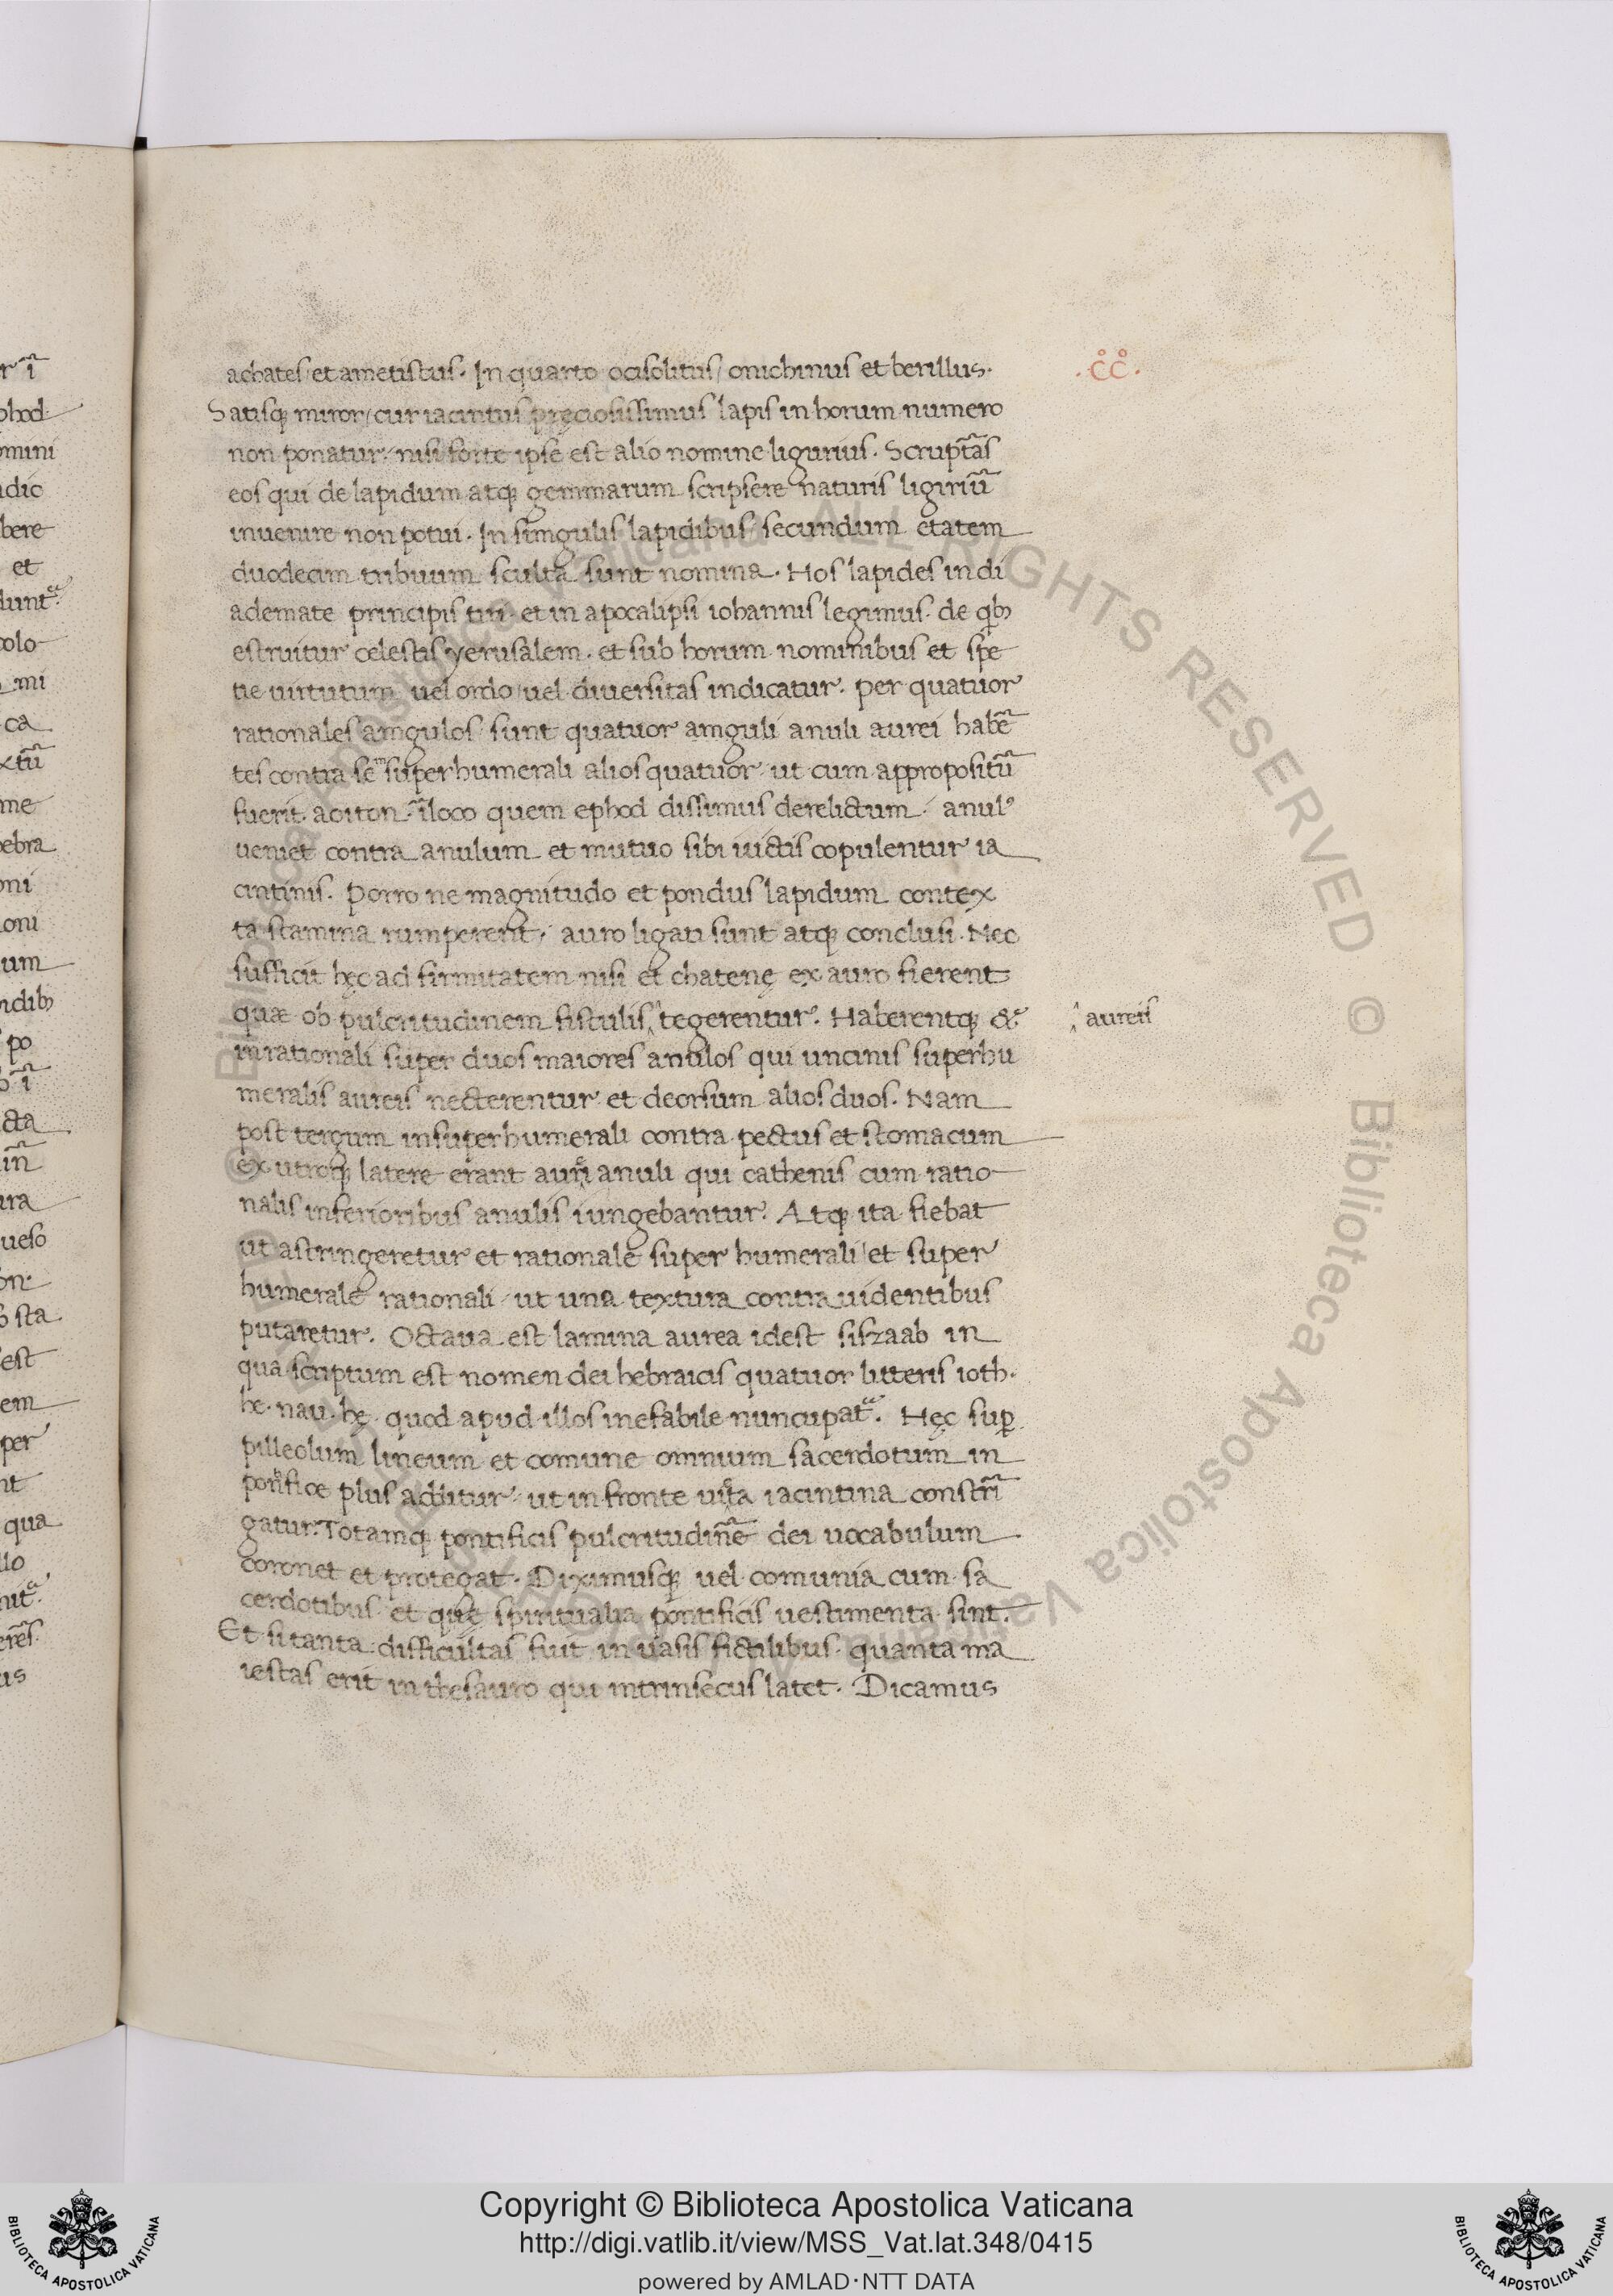 .c̊c̊.
achates et ametistus. In quarto ocisolitus/ onichinus et berillus.
Satisq; miror/ cur iacintus pręciosissimus lapis in horum numero
non ponatur: nisi forte ipse est alio nomine ligurius. Scruptãs
eos qui de lapidum atq; gemmarum scripsere naturis ligiriũ
inuenire non potui. In simgulis lapidibus/ secundum etatem
duodecim tribuum sculta sunt nomina. Hos lapides in di
ademate principis tiri. et in apocalipsi iohannis legimus. de qb;
estruitur celestis yerusalem. et sub horum nominibus et spe
tie uirtutum uel ordo/ uel diuersitas indicatur. Per quatuor
rationales amgulos sunt quatuor amguli anuli aurei habẽ
tes contra se in superhumerali alios quatuor. ut cum appropositũ
fuerit aoiton. ĩ loco quem ephod dissimus derelictum. anul᾽
ueniet contra anulum et mutuo sibi uictis copulentur ia
cintinis. Porro ne magnitudo et pondus lapidum contex
ta stamina rumperent, auro ligati sunt atq; conclusi. Nec
sufficit hęc ad firmitatem nisi et chatenę ex auro fierent
quæ ob pulcritudinem fistulis ^ tegerentur. Haberentq; &
^ aureis
in rationali super duos maiores anulos qui uncinis superhu
meralis aureis necterentur et deorsum alios duos. Nam
post tergum in superhumerali contra pectus et stomacum
ex utroq; latere erant aurei anuli qui cathenis cum ratio
nalis inferioribus anulis iungebantur. Atq; ita fiebat
ut astringeretur et rationale super humerali/ et super
humerale rationali. ut una textura contra uidentibus
putaretur. Octaua est lamina aurea idest sifzaab in
qua scriptum est nomen dei hebraicis quatuor litteris ioth.
he. uau. hę. quod apud illos inefabile nuncupat᷑. Hęc sup̱
pilleolum lineum et comune omnium sacerdotum in
pontifice plus additur. ut in fronte uitta iacintina constrĩ
gatur. Totamq; pontificis pulcritudinẽ dei uocabulum
coronet et protegat. Diximusq; uel comunia cum sa
cerdotibus et quę spiritualia pontificis uestimenta sint.
Et si tanta difficultas fuit in uasis fictilibus. quanta ma
iestas erit in thesauro qui intrinsecus latet. Dicamus
Copyright © Biblioteca Apostolica Vaticana
http://digi.vatlib.it/view/MSS_Vat.lat.348/0415
powered by AMLAD·NTT DATA